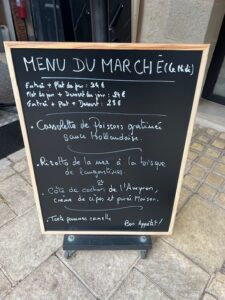 MENU DU MARCHÉ (Le Midi)
Entrée + Plat du jour : 24€
Plat du jour + Dessert du jour : 24€
Entrée + Plat + Dessert : 28€
. Cassolette de Poissons gratinée
sauce Hollandaise.
. Risotto de la mer à la bisque
de langoustines.
ou
. Côte de cochon de l'Aveyron,
crème de cèpes et purée Maison.
. Tarte pommes cannelle
Bon Appétit!